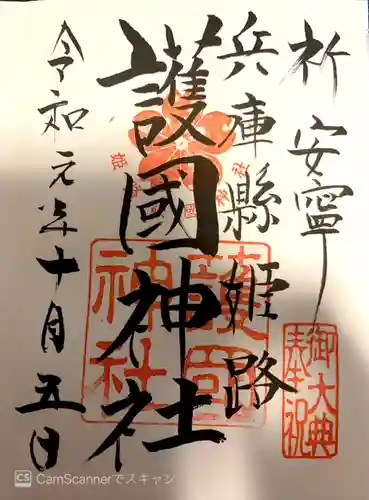 祈安寧
兵庫縣姫路
護國神社
令和元年十月五日
御大典
奉祝
護國
神社
CS CamScannerでスキャン